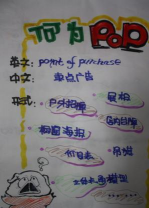 何为POP
英文: point of purchase
中文: 卖点广告
形式: 户外招牌 展板
橱窗海报 店内台牌
价目表 吊旗
立体卡通模型